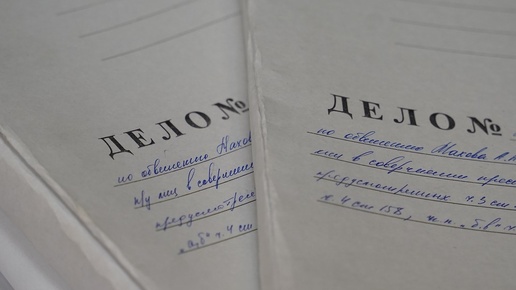 ДЕЛО №
по обвинению
лиц в совершении
предусмотрен
"а,б" ч. 4 ст
ДЕЛО №
по обвинению Махова
лиц в совершении
предусмотренных ч. 3 ст
ч. 4 ст 158,